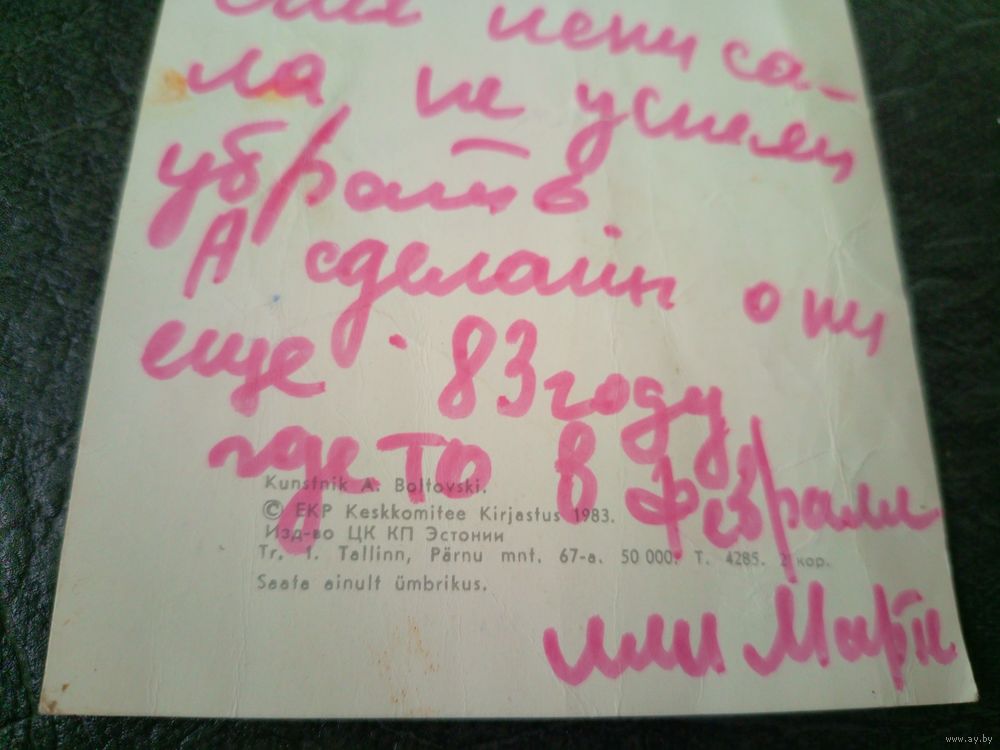 писа-
ла не успели
убрать
А сделали они
еще 83 году
где то в феврале
или Марте
Kunstnik A. Boltovski.
© EKP Keskkomitee Kirjastus 1983.
Изд-во ЦК КП Эстонии
Tr. 1. Tallinn, Pärnu mnt. 67-a. 50 000. T. 4285. 2 кор.
Saata ainult ümbrikus.
www.ay.by